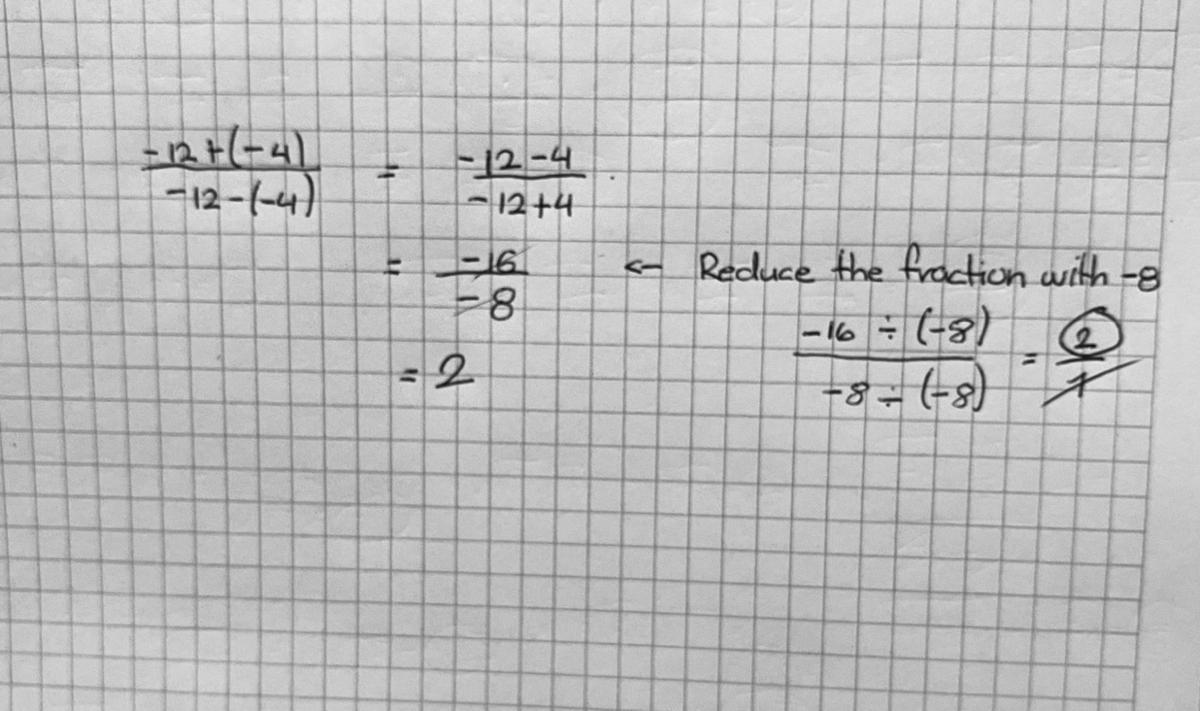 -12+(-4) = -12-4
-12-(-4) -12+4
= -16 ← Reduce the fraction with -8
-8
-16 ÷ (-8) = 2
-8 ÷ (-8) 1
= 2